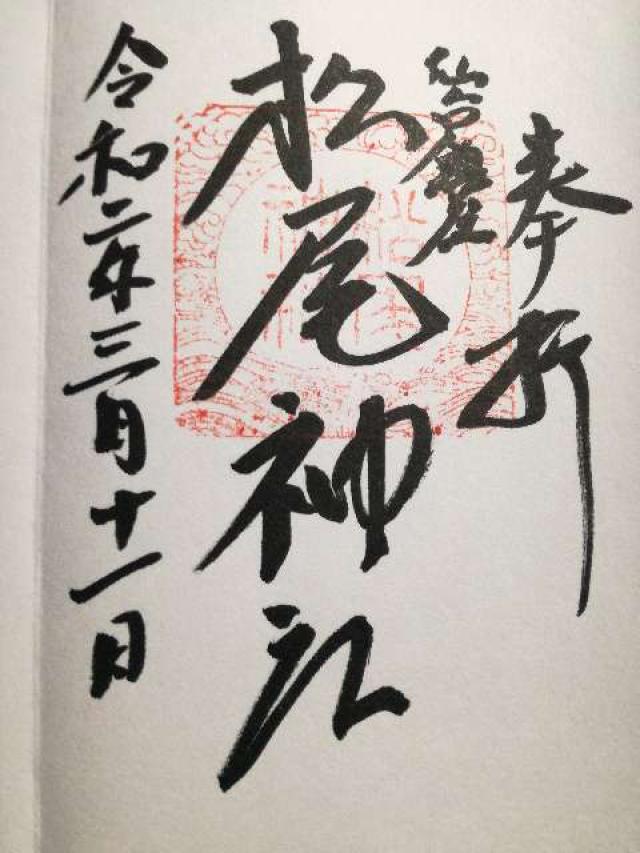 奉拝
松尾神社
令和二年三月十一日